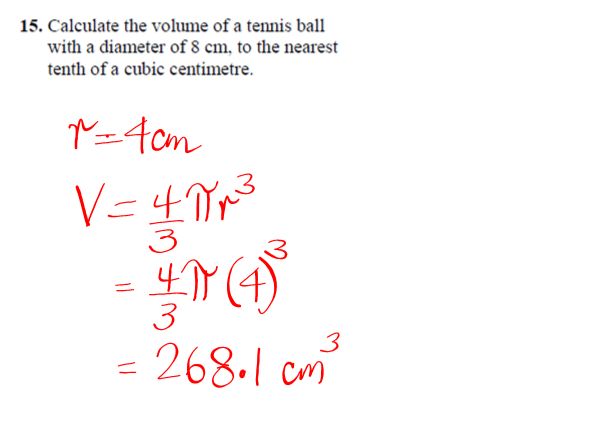 15. Calculate the volume of a tennis ball
with a diameter of 8 cm, to the nearest
tenth of a cubic centimetre.
r = 4cm
V = 4/3 πr³
= 4/3 π(4)³
= 268.1 cm³